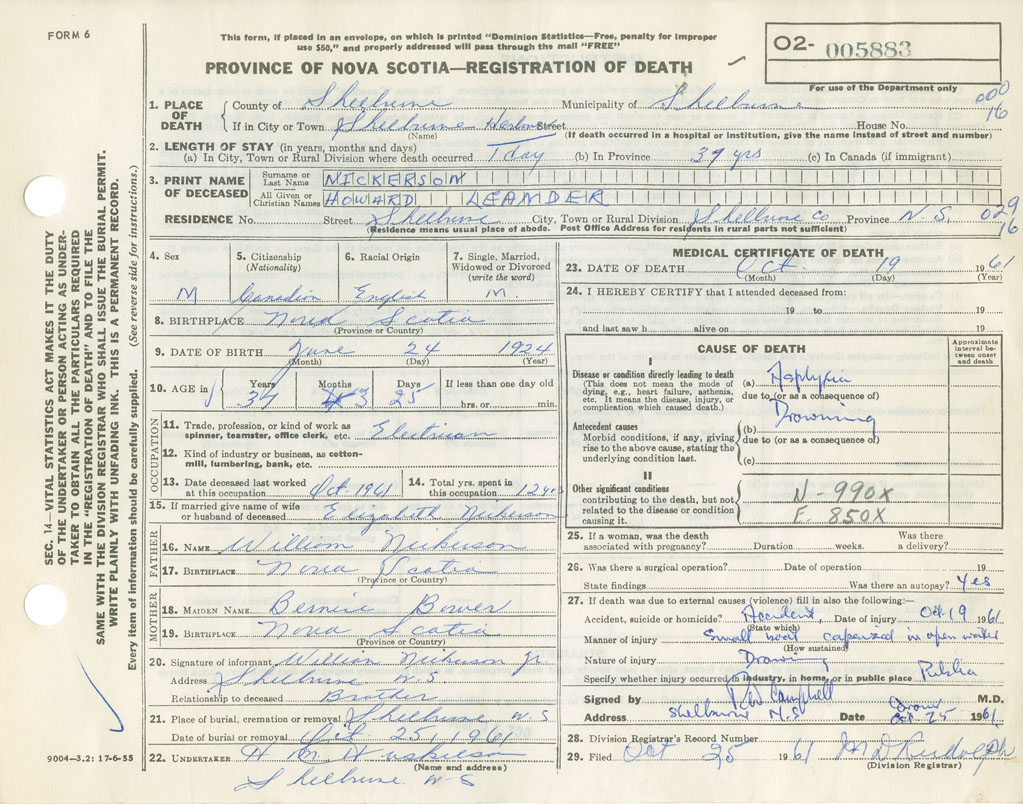 FORM 6
This form, if placed in an envelope, on which is printed "Dominion Statistics—Free, penalty for improper
use $50," and properly addressed will pass through the mail "FREE"
PROVINCE OF NOVA SCOTIA—REGISTRATION OF DEATH
02- 005883
For use of the Department only
000
16
SEC. 14—VITAL STATISTICS ACT MAKES IT THE DUTY
OF THE UNDERTAKER OR PERSON ACTING AS UNDER-
TAKER TO OBTAIN ALL THE PARTICULARS REQUIRED
IN THE "REGISTRATION OF DEATH" AND TO FILE THE
SAME WITH THE DIVISION REGISTRAR WHO SHALL ISSUE THE BURIAL PERMIT.
WRITE PLAINLY WITH UNFADING INK. THIS IS A PERMANENT RECORD.
Every item of information should be carefully supplied. (See reverse side for instructions.)
1. PLACE OF DEATH County of Shelburne Municipality of Shelburne
If in City or Town Shelburne Harbour Street House No.
(Name) (If death occurred in a hospital or institution, give the name instead of street and number)
2. LENGTH OF STAY (in years, months and days)
(a) In City, Town or Rural Division where death occurred 1 day (b) In Province 37 yrs (c) In Canada (if immigrant)
3. PRINT NAME OF DECEASED Surname or Last Name NICKERSON
All Given or Christian Names HOWARD LEANDER
RESIDENCE No. Street Shelburne City, Town or Rural Division Shelburne Co Province N.S. 029
16
(Residence means usual place of abode. Post Office Address for residents in rural parts not sufficient)
4. Sex M
5. Citizenship (Nationality) Canadian
6. Racial Origin English
7. Single, Married, Widowed or Divorced (write the word) M.
8. BIRTHPLACE Nova Scotia
(Province or Country)
9. DATE OF BIRTH June 24 1924
(Month) (Day) (Year)
10. AGE in Years 37 Months 3 Days 25 If less than one day old
hrs. or min.
OCCUPATION
11. Trade, profession, or kind of work as
spinner, teamster, office clerk, etc. Electrician
12. Kind of industry or business, as cotton-
mill, lumbering, bank, etc.
13. Date deceased last worked at this occupation Oct. 1961 14. Total yrs. spent in this occupation 12 yrs
15. If married give name of wife
or husband of deceased Elizabeth Nickerson
FATHER
16. NAME William Nickerson
17. BIRTHPLACE Nova Scotia
(Province or Country)
MOTHER
18. MAIDEN NAME Bernice Bower
19. BIRTHPLACE Nova Scotia
(Province or Country)
20. Signature of informant William Nickerson Jr
Address Shelburne N.S
Relationship to deceased Brother
21. Place of burial, cremation or removal Shelburne N.S
Date of burial or removal Oct. 25, 1961
22. UNDERTAKER H M
(Name and address)
Shelburne N-S
9004—3.2: 17-6-55
MEDICAL CERTIFICATE OF DEATH
23. DATE OF DEATH Oct. 19 1961
(Month) (Day) (Year)
24. I HEREBY CERTIFY that I attended deceased from:
19 to 19
and last saw h alive on 19
CAUSE OF DEATH
Approximate interval between onset and death
I
Disease or condition directly leading to death
(This does not mean the mode of
dying, e.g., heart failure, asthenia,
etc. It means the disease, injury, or
complication which caused death.)
(a) Asphyxia
due to (or as a consequence of)
Drowning
Antecedent causes
Morbid conditions, if any, giving
rise to the above cause, stating the
underlying condition last.
(b)
due to (or as a consequence of)
(c)
II
Other significant conditions
contributing to the death, but not
related to the disease or condition
causing it.
N-990X
E. 850X
25. If a woman, was the death
associated with pregnancy? Duration weeks. Was there a delivery?
26. Was there a surgical operation? Date of operation 19
State findings Was there an autopsy? Yes
27. If death was due to external causes (violence) fill in also the following:—
Accident, suicide or homicide? Accident, Date of injury Oct 19 1961
(State which)
Manner of injury Small boat capsized in open water
(How sustained)
Nature of injury Drowning
Specify whether injury occurred in industry, in home, or in public place Public
Signed by Campbell M.D.
Address Shelburne N.S Date Oct 25 1961
28. Division Registrar's Record Number
29. Filed Oct 25 1961 M D Rudolph
(Division Registrar)